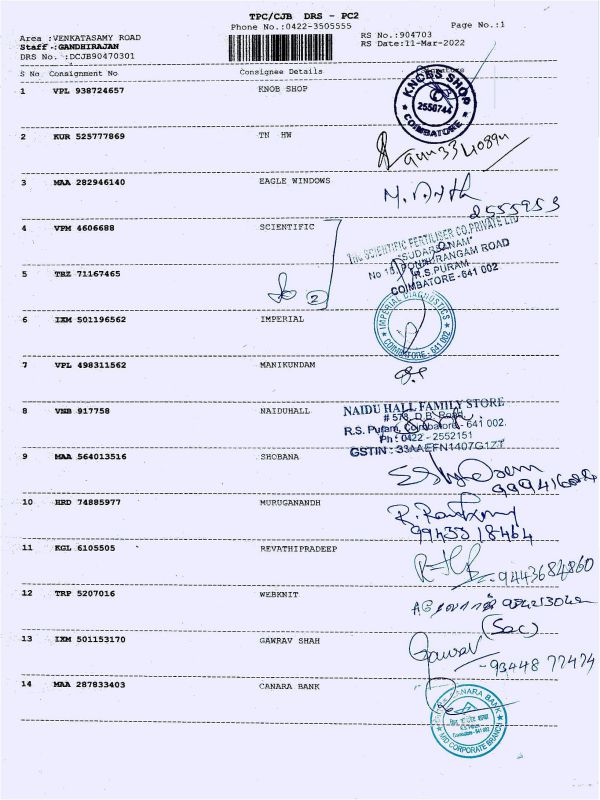 TPC/CJB DRS - PC2
Phone No.:0422-3505555
Page No.:1
Area :VENKATASAMY ROAD
RS No.:904703
Staff.:GANDHIRAJAN
RS Date:11-Mar-2022
DRS No. :DCJB90470301
S No Consignment No Consignee Details
1 VPL 938724657 KNOB SHOP
KNOBS SHOP
2550744
★ COIMBATORE ★
2 KUR 525777869 TN HW
3 MAA 282946140 EAGLE WINDOWS
2555953
4 VPM 4606688 SCIENTIFIC
THE SCIENTIFIC FERTILISER CO.PRIVATE LTD
"SUDARSANAM"
R.S.PURAM
COIMBATORE-641 002
5 TRZ 71167465
2
6 IXM 501196562 IMPERIAL
IMPERIAL DIAGNOSTICS
★ COIMBATORE - 641 002 ★
7 VPL 498311562 MANIKUNDAM
8 VNB 917758 NAIDUHALL
NAIDU HALL FAMILY STORE
# 578, D.B. Road,
R.S. Puram, Coimbatore- 641 002.
Ph : 0422 - 2552151
GSTIN : 33AAEFN1407G1ZT
9 MAA 564013516 SHOBANA
10 HRD 74885977 MURUGANANDH
11 KGL 6105505 REVATHIPRADEEP
9443684860
12 TRP 5207016 WEBKNIT
(Sac)
13 IXM 501153170 GAWRAV SHAH
Gawrav
-93448 77474
14 MAA 287833403 CANARA BANK
CANARA BANK
MID CORPORATE BRANCH